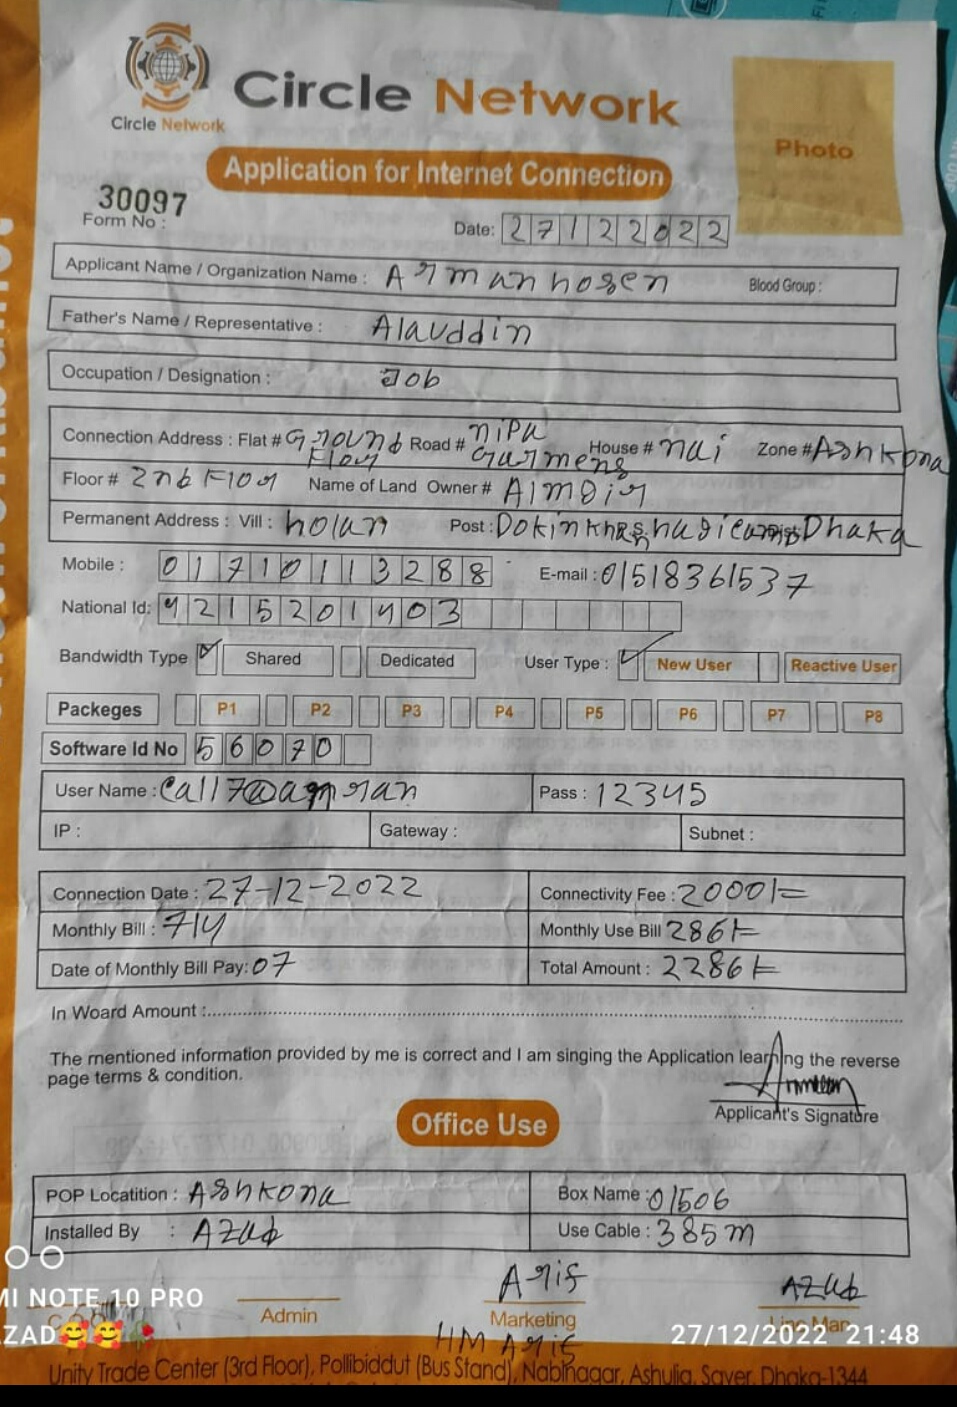 Circle Network
Circle Network
Photo
Application for Internet Connection
30097
Form No :
Date: 27122022
Applicant Name / Organization Name : Armanhosen Blood Group :
Father's Name / Representative : Alauddin
Occupation / Designation : Job
Connection Address : Flat # Ground Floor Road # nipa Garmens House # nai Zone # Ashkona
Floor # 2nd Floor Name of Land Owner #
Permanent Address : Vill : holan Post : Dhaka
Mobile : 01710113288 E-mail : 01518361537
National Id: 4215201403
Bandwidth Type Shared Dedicated User Type : New User Reactive User
Packeges P1 P2 P3 P4 P5 P6 P7 P8
Software Id No 56070
User Name : Pass : 12345
IP : Gateway : Subnet :
Connection Date : 27-12-2022 Connectivity Fee : 2000/=
Monthly Bill : 714 Monthly Use Bill 286/=
Date of Monthly Bill Pay: 07 Total Amount : 2286/=
In Woard Amount :
The mentioned information provided by me is correct and I am singing the Application learning the reverse
page terms & condition.
Applicant's Signature
Office Use
POP Locatition : Ashkona Box Name : 01506
Installed By : Azad Use Cable : 385m
Arif Azad
Admin Marketing Line Man
HM Arif
MI NOTE 10 PRO
ZAD🥰🥰🥀
27/12/2022 21:48
Unity Trade Center (3rd Floor), Pollibiddut (Bus Stand), Nabinagar, Ashulia, Saver, Dhaka-1344